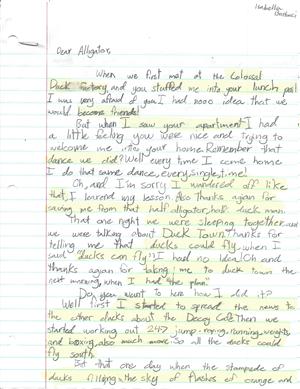 Isabella
Dear Alligator,
When we first met at the Colossal
Duck Factory, and you stuffed me into your lunch pail
I was very afraid of you. I had nooo idea that we
would become friends!
But when I saw your apartment I had
a little feeling you were nice and trying to
welcome me into your home. Remember that
dance we did? Well every time I come home
I do that same dance, every.single.time!
Oh, and I'm sorry I wandered off like
that, I learend my lesson. Also thanks again for
saving me from that half alligator, half duck man.
That one right we were sleeping together, and
we were talking about Duck Town. Thanks for
telling me that ducks could fly, when I
said "ducks can fly"! I had no idea! Oh and
thanks again for taking me to duck town the
next morning when I had "the plan."
Do you want to here how I did it?
Well first I started to spread the news to
the other ducks about the Decoy Cafe. Then we
started working out 24/7 jump-roping, running, weights
and boxing, also much more. So all the ducks could
fly south.
But that one day when the stampede of
ducks filling the sky of flashes of orange and